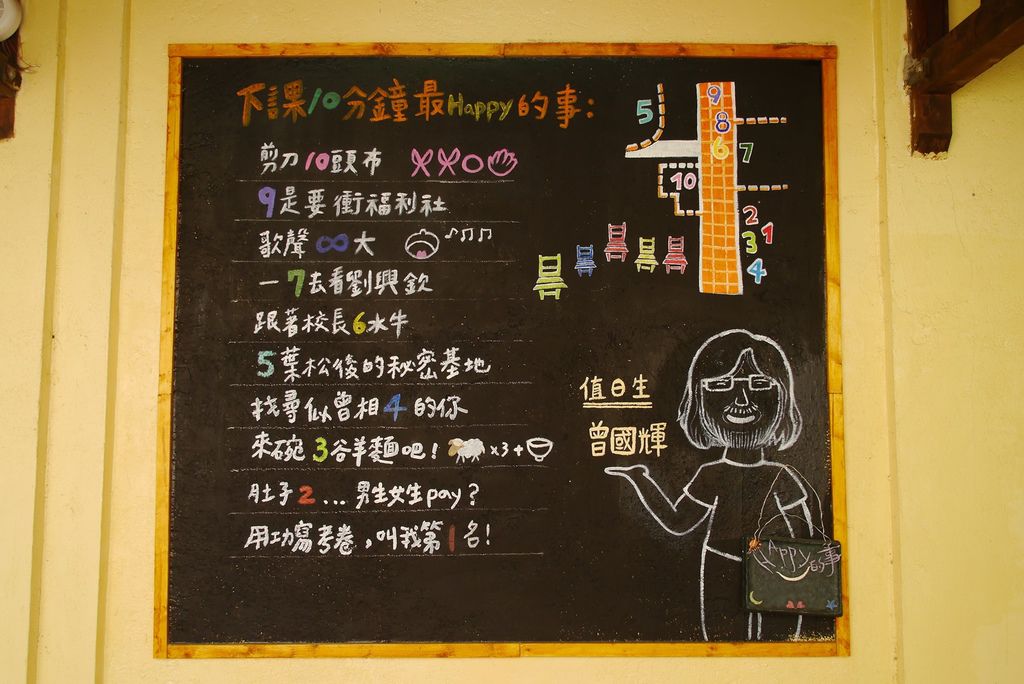 下課10分鐘最Happy的事:
剪刀10頭布
9是要衝福利社
歌聲∞大
一7去看劉興欽
跟著校長6水牛
5葉松後的秘密基地
找尋似曾相4的你
來碗3谷羊麵吧! x3+
肚子2...男生女生pay?
用功寫考卷,叫我第1名!
9
8
5
6
7
10
2
1
3
4
值日生
曾國輝
HAPPY的事